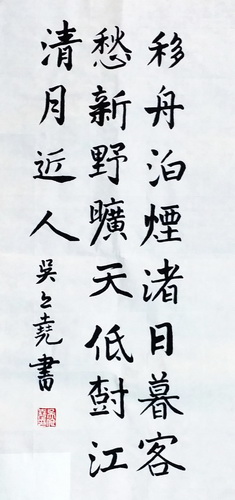 移舟泊煙渚日暮客
愁新野曠天低樹江
清月近人
吳之堯書